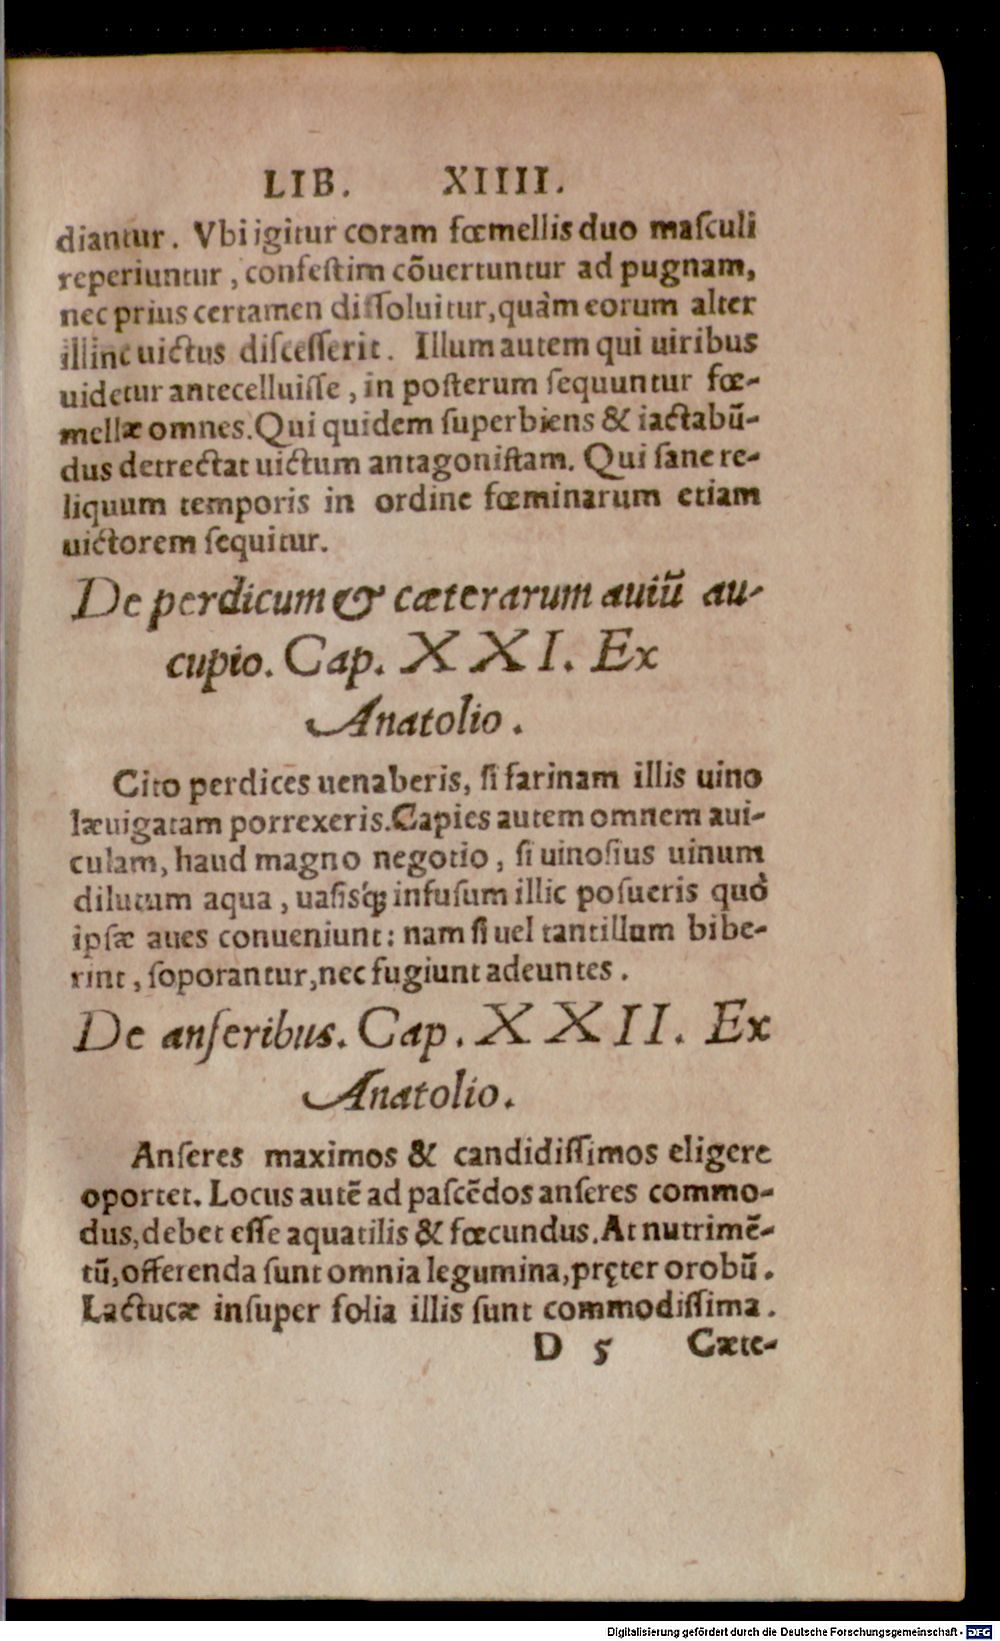 LIB. XIIII.
diantur. Vbi igitur coram fœmellis duo maſculi
reperiuntur, confeſtim cõuertuntur ad pugnam,
nec prius certamen diſſoluitur, quàm eorum alter
illinc uictus diſceſſerit. Illum autem qui uiribus
uidetur antecelluiſſe, in poſterum ſequuntur fœ-
mellæ omnes. Qui quidem ſuperbiens & iactabũ-
dus detrectat uictum antagoniſtam. Qui ſane re-
liquum temporis in ordine fœminarum etiam
uictorem ſequitur.
De perdicum & cæterarum auiũ au-
cupio. Cap. XXI. Ex
Anatolio.
Cito perdices uenaberis, ſi farinam illis uino
læuigatam porrexeris. Capies autem omnem aui-
culam, haud magno negotio, ſi uinoſius uinum
dilutum aqua, uaſisq́ꝫ infuſum illic poſueris quò
ipſæ aues conueniunt: nam ſi uel tantillum bibe-
rint, ſoporantur, nec fugiunt adeuntes.
De anſeribus. Cap. XXII. Ex
Anatolio.
Anſeres maximos & candidiſſimos eligere
oportet. Locus autẽ ad paſcẽdos anſeres commo-
dus, debet eſſe aquatilis & fœcundus. At nutrimẽ-
tũ, offerenda ſunt omnia legumina, pręter orobũ.
Lactucæ inſuper folia illis ſunt commodiſſima.
D 5 Cæte-
Digitalisierung gefördert durch die Deutsche Forschungsgemeinschaft - DFG